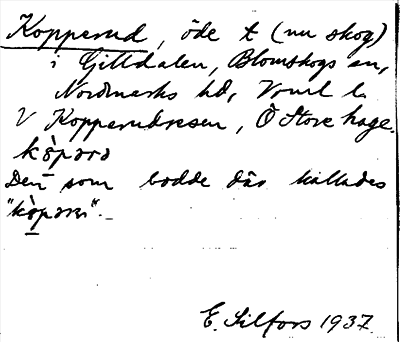 Kopperud, öde t (nu skog)
i Gilldalen, Blomskogs sn,
Nordmarks hd, Vrml l.
V Kopperudsesen, Ö Store hage.
kòpərə
Den som bodde där kallades
"kòpərn".
E. Silfors 1937.